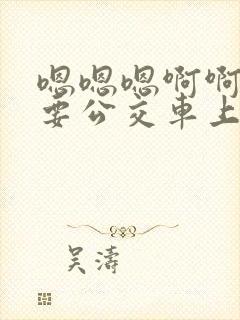 嗯嗯嗯啊啊
要公交車上
吴濤